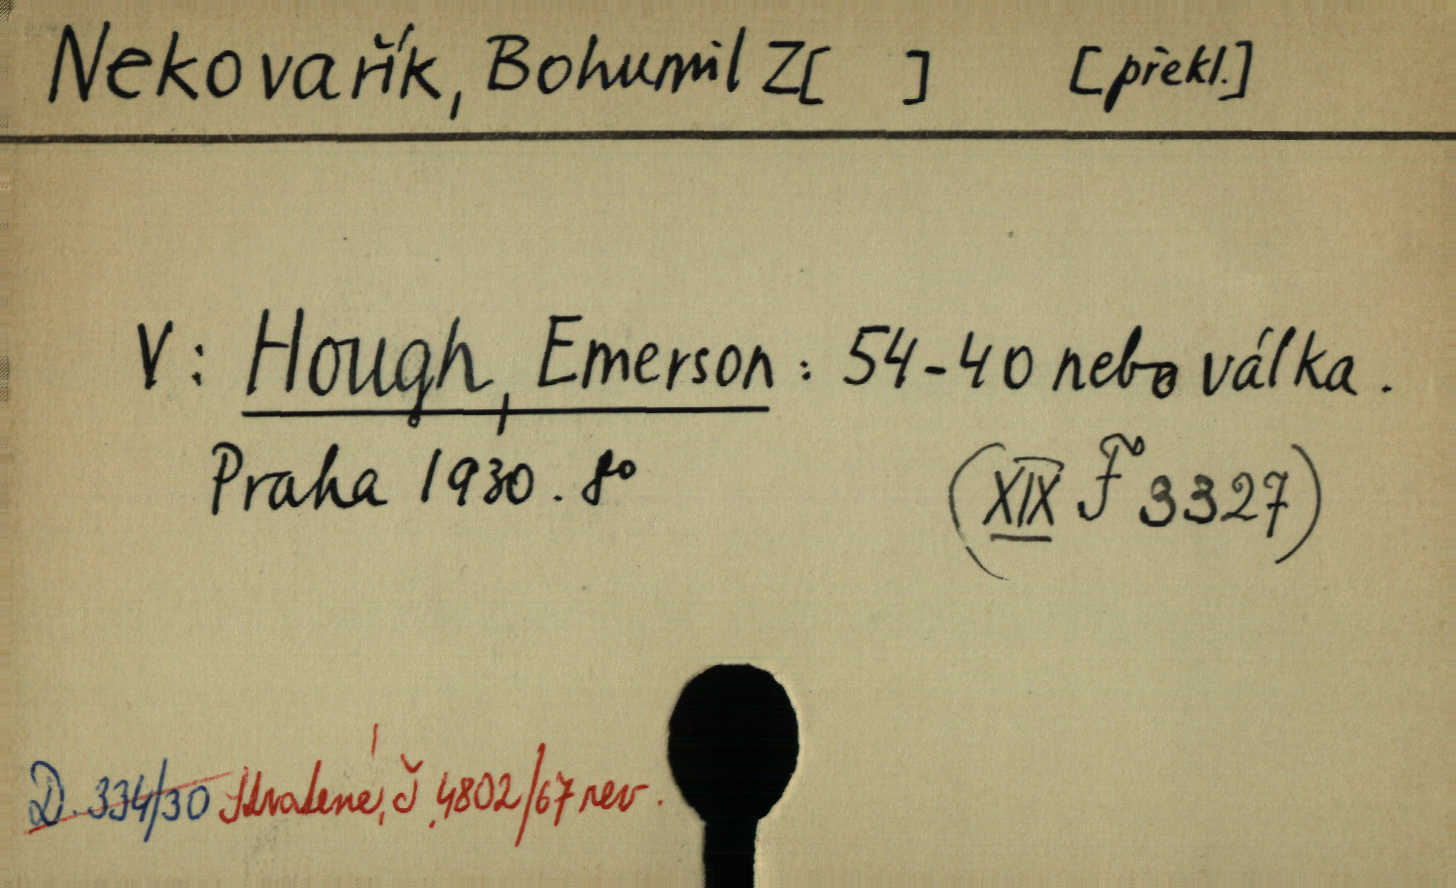 Nekovařík, Bohumil Z[ ] [překl.]
V: Hough, Emerson: 54-40 nebo válka.
Praha 1930. 8°
(XIX F 3327)
D. 334/30 Ztracené, č. 4802/67 rev.